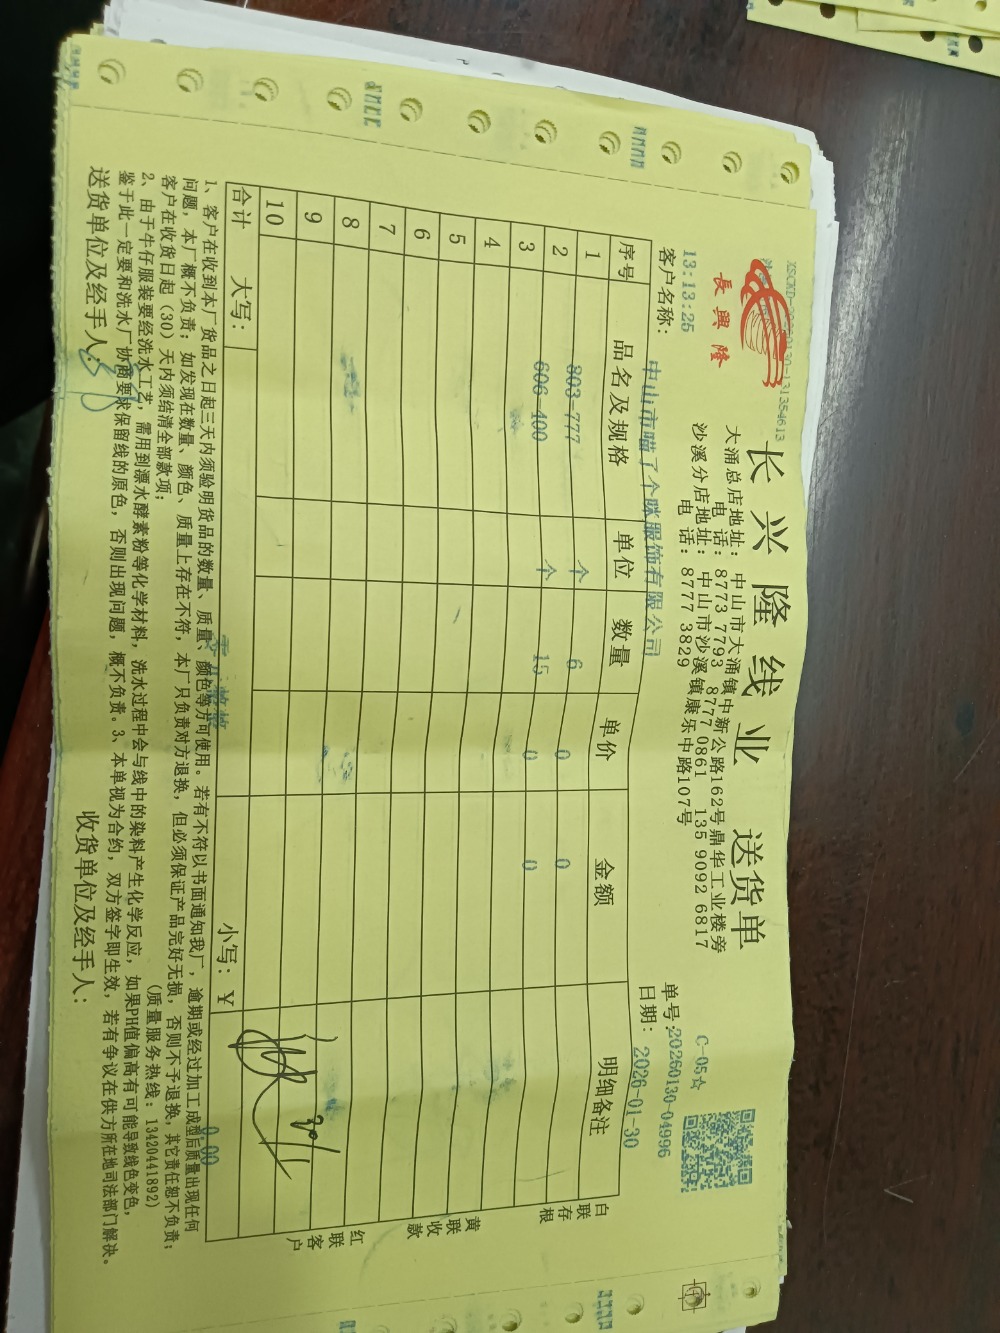 長興隆
长兴隆线业 送货单
大涌总店地址：中山市大涌镇中新公路162号鼎华工业楼旁
电话：8773 7793 8777 0861 135 9092 6817
沙溪分店地址：中山市沙溪镇康乐中路107号
电话：8777 3829
C-05☆
单号：20260130-04996
13:13:25
日期：2026-01-30
客户名称：中山市喵了个咪服饰有限公司
序号 品名及规格 单位 数量 单价 金额 明细备注
1 803-777 个 6 0 0
2 606-400 个 15 0 0
3
4
5
6
7
8
9
10
合计 大写： 小写：￥ 0.00
白联存根
黄联收款
红联客户
1、客户在收到本厂货品之日起三天内须验明货品的数量、质量、颜色等方可使用。若有不符以书面通知我厂，逾期或经过加工成型后质量出现任何
问题，本厂概不负责；如发现在数量、颜色、质量上存在不符，本厂只负责对方退换，但必须保证产品完好无损，否则不予退换，其它责任恕不负责；
客户在收货日起（30）天内须结清全部款项； （质量服务热线：13420441892）
2、由于牛仔服装要经洗水工艺，需用到漂水酵素粉等化学材料，洗水过程中会与线中的染料产生化学反应，如果PH值偏高有可能导致线色变色，
鉴于此一定要和洗水厂协商要求保留线的原色，否则出现问题，概不负责。3、本单视为合约，双方签字即生效，若有争议在供方所在地司法部门解决。
送货单位及经手人： 收货单位及经手人：